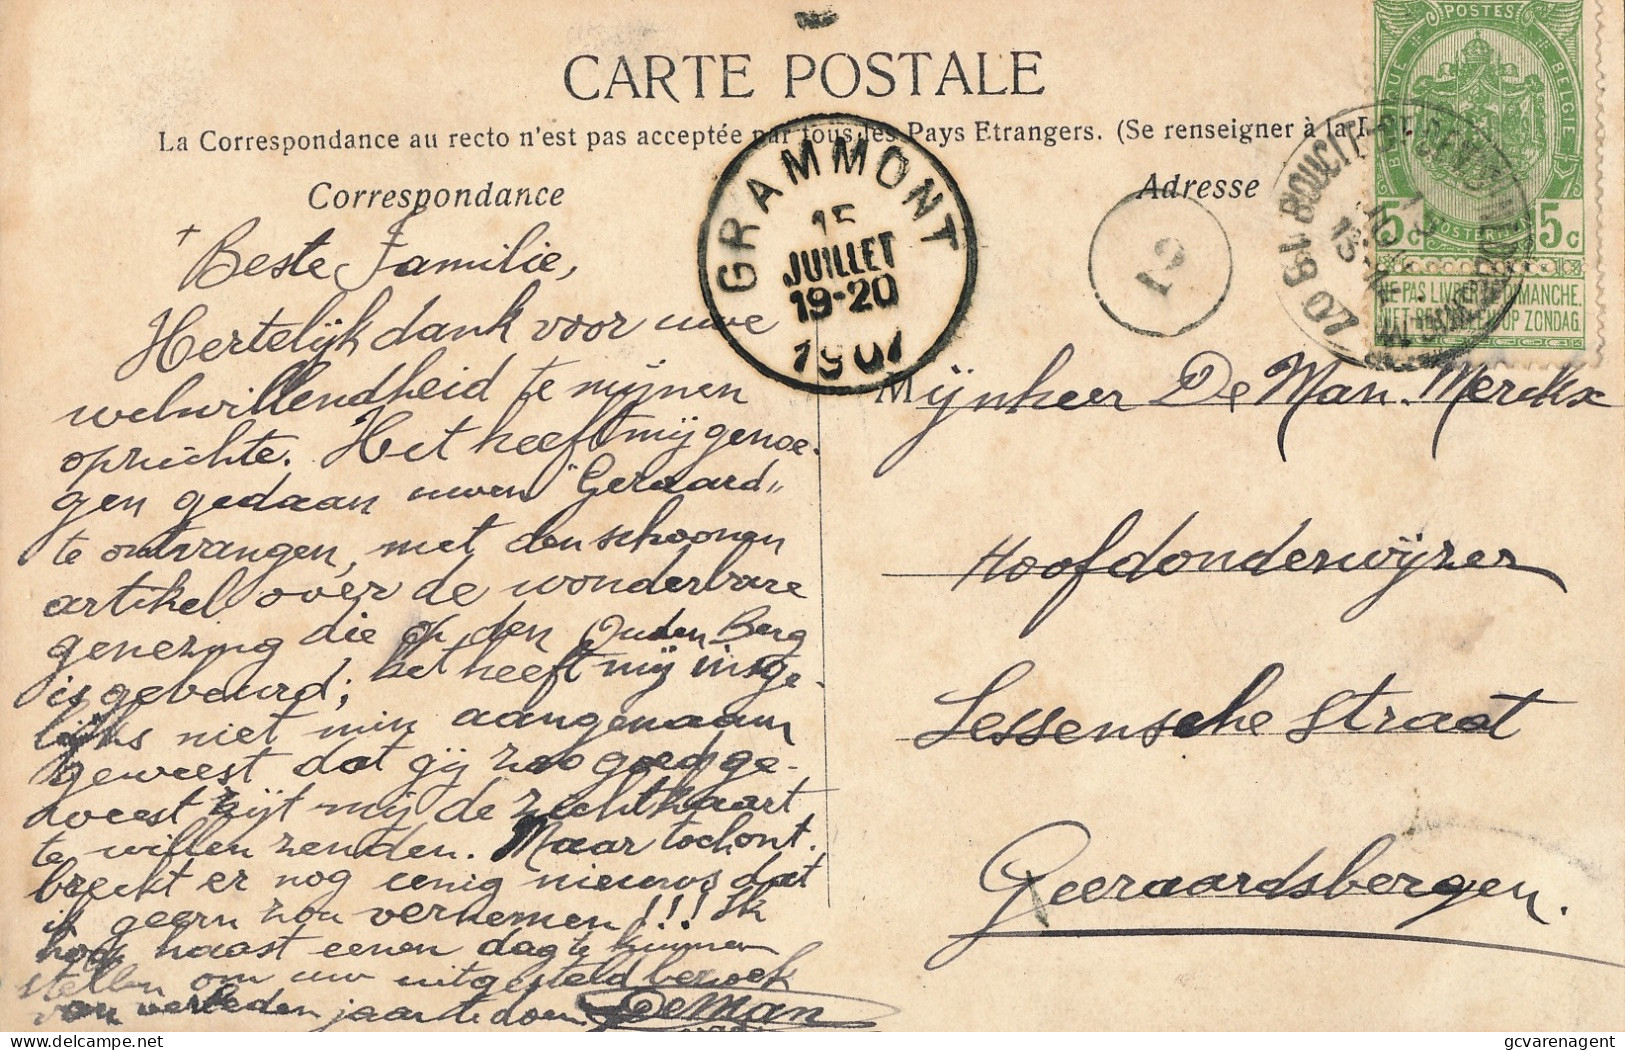 CARTE POSTALE
La Correspondance au recto n'est pas acceptée par tous les Pays Etrangers. (Se renseigner à la
Correspondance
Adresse
POSTES
BELGIQUE
BELGIE
POSTERIJEN
5c 5c
NE PAS LIVRER LE DIMANCHE.
NIET BESTELLEN OP ZONDAG
GRAMMONT
15
JUILLET
19-20
1907
+ Beste Familie,
Hertelijk dank voor uwe
welwillendheid te mijnen
oprichte. Het heeft mij genoe-
gen gedaan uwen "Geraard"
te ontvangen, met den schoonen
artikel over de wonderbare
genezing die op den Ouden Berg
is gebeurd; het heeft mij insge-
lijks niet min aangenaam
geweest dat gij zoo goed ge-
weest zijt mij de zichtkaart
te willen zenden. Maar toch ont-
breekt er nog eenig nieuws dat
ik geern zou vernemen!!! Ik
hoop haast eenen dag te kunnen
stellen om uw uitgesteld bezoek
van verleden jaar te doen.
DeMan
Mijnheer De Man. Merckx
Hoofdonderwijzer
Lessensche Straat
Geeraardsbergen.
gcvarenagent